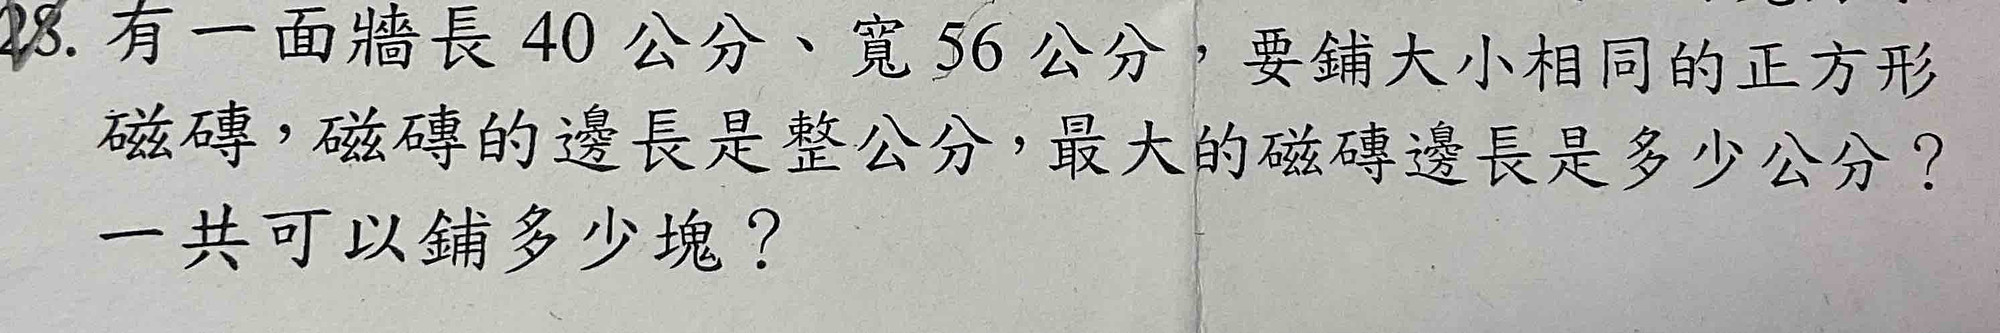 28. 有一面牆長 40 公分、寬 56 公分，要鋪大小相同的正方形
磁磚，磁磚的邊長是整公分，最大的磁磚邊長是多少公分？
一共可以鋪多少塊？